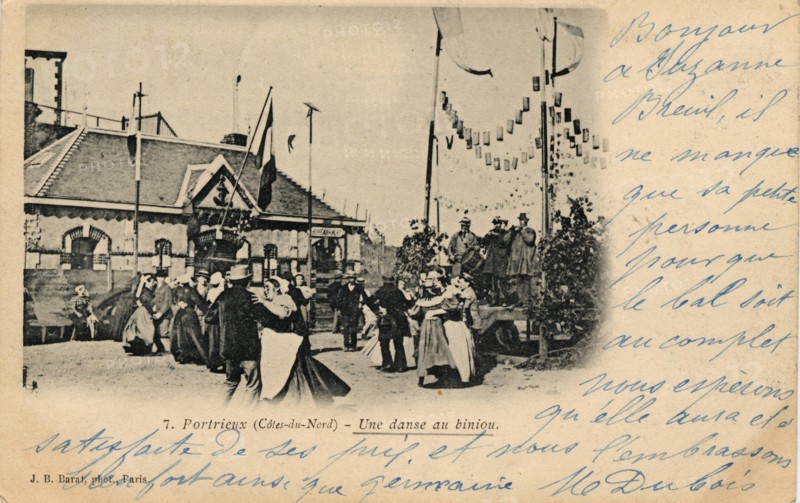 Bonjour
a Suzanne
Breuil, il
ne manque
que sa petite
personne
pour que
le bal soit
au complet
nous espérons
qu'elle aura été
7. Portrieux (Côtes-du-Nord) - Une danse au biniou.
satisfaite de ses prix et nous l'embrassons
bien fort ainsi que germaine M Dubois
J. B. Barat, phot., Paris.
PHOTO12